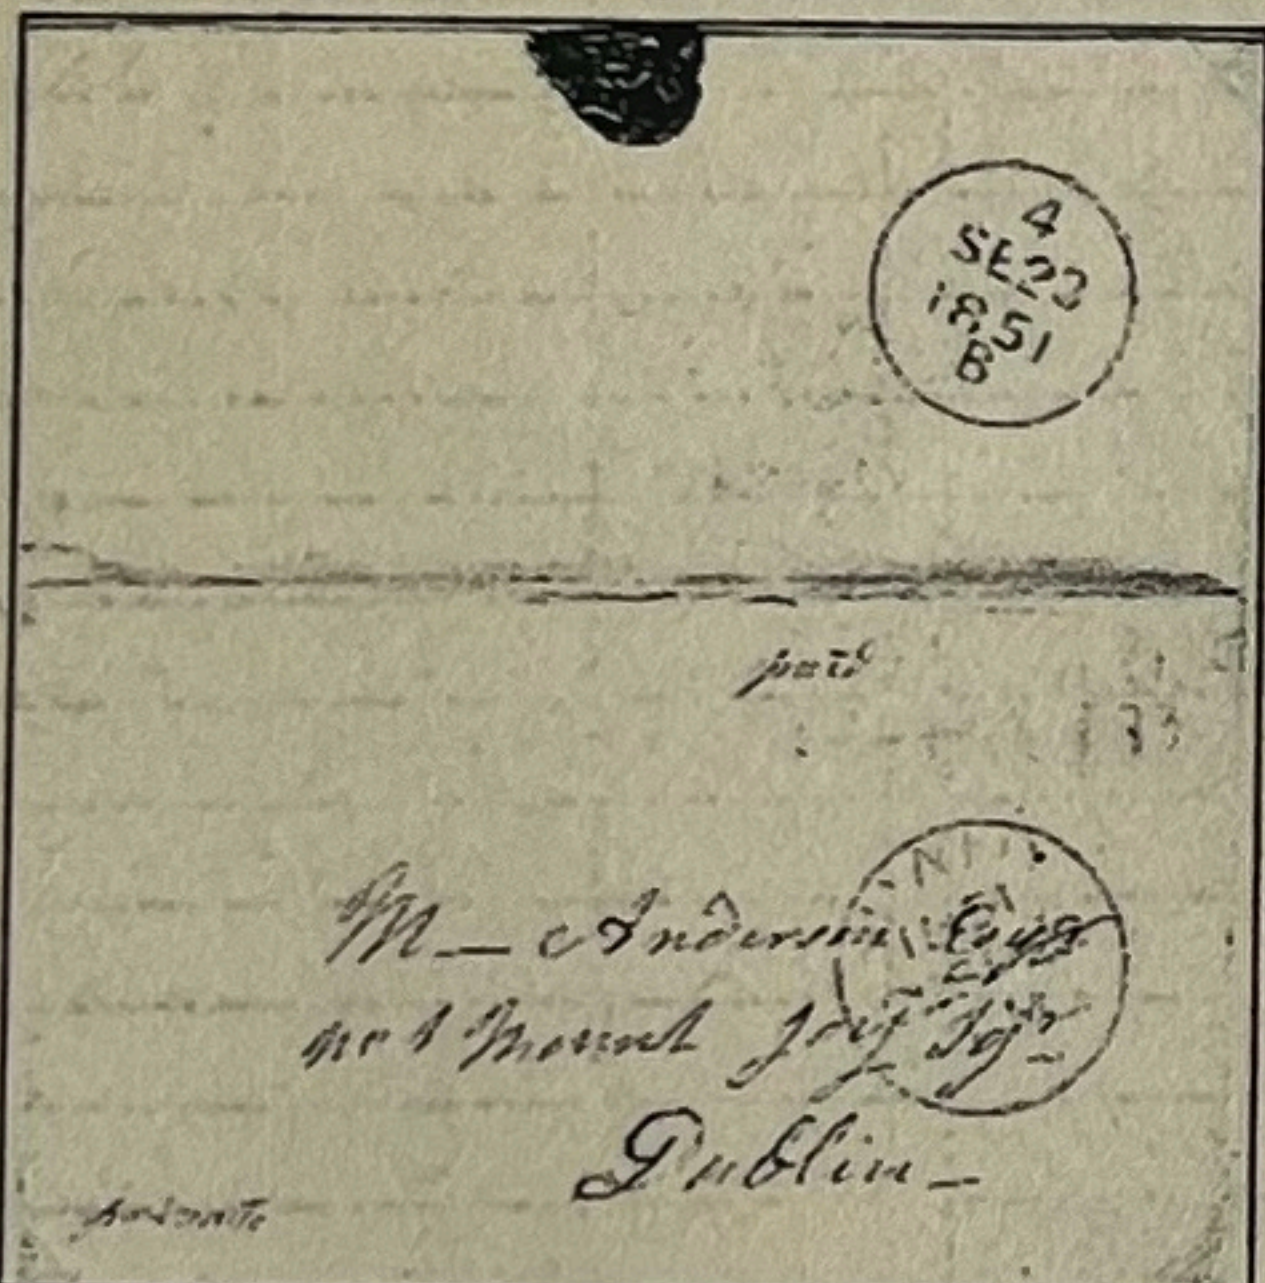 4
SE23
1851
B
paid
M— Anderson Esqr
no 1 Mount Joy Sqr
Dublin—
private